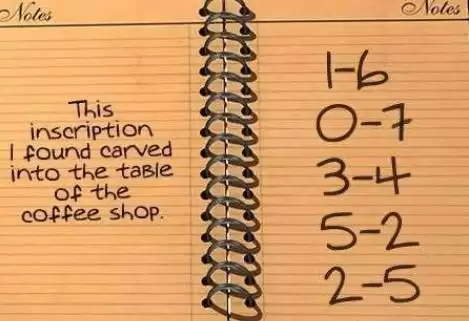 Notes
This
inscription
I found carved
into the table
of the
coffee shop.
Notes
1-6
0-7
3-4
5-2
2-5